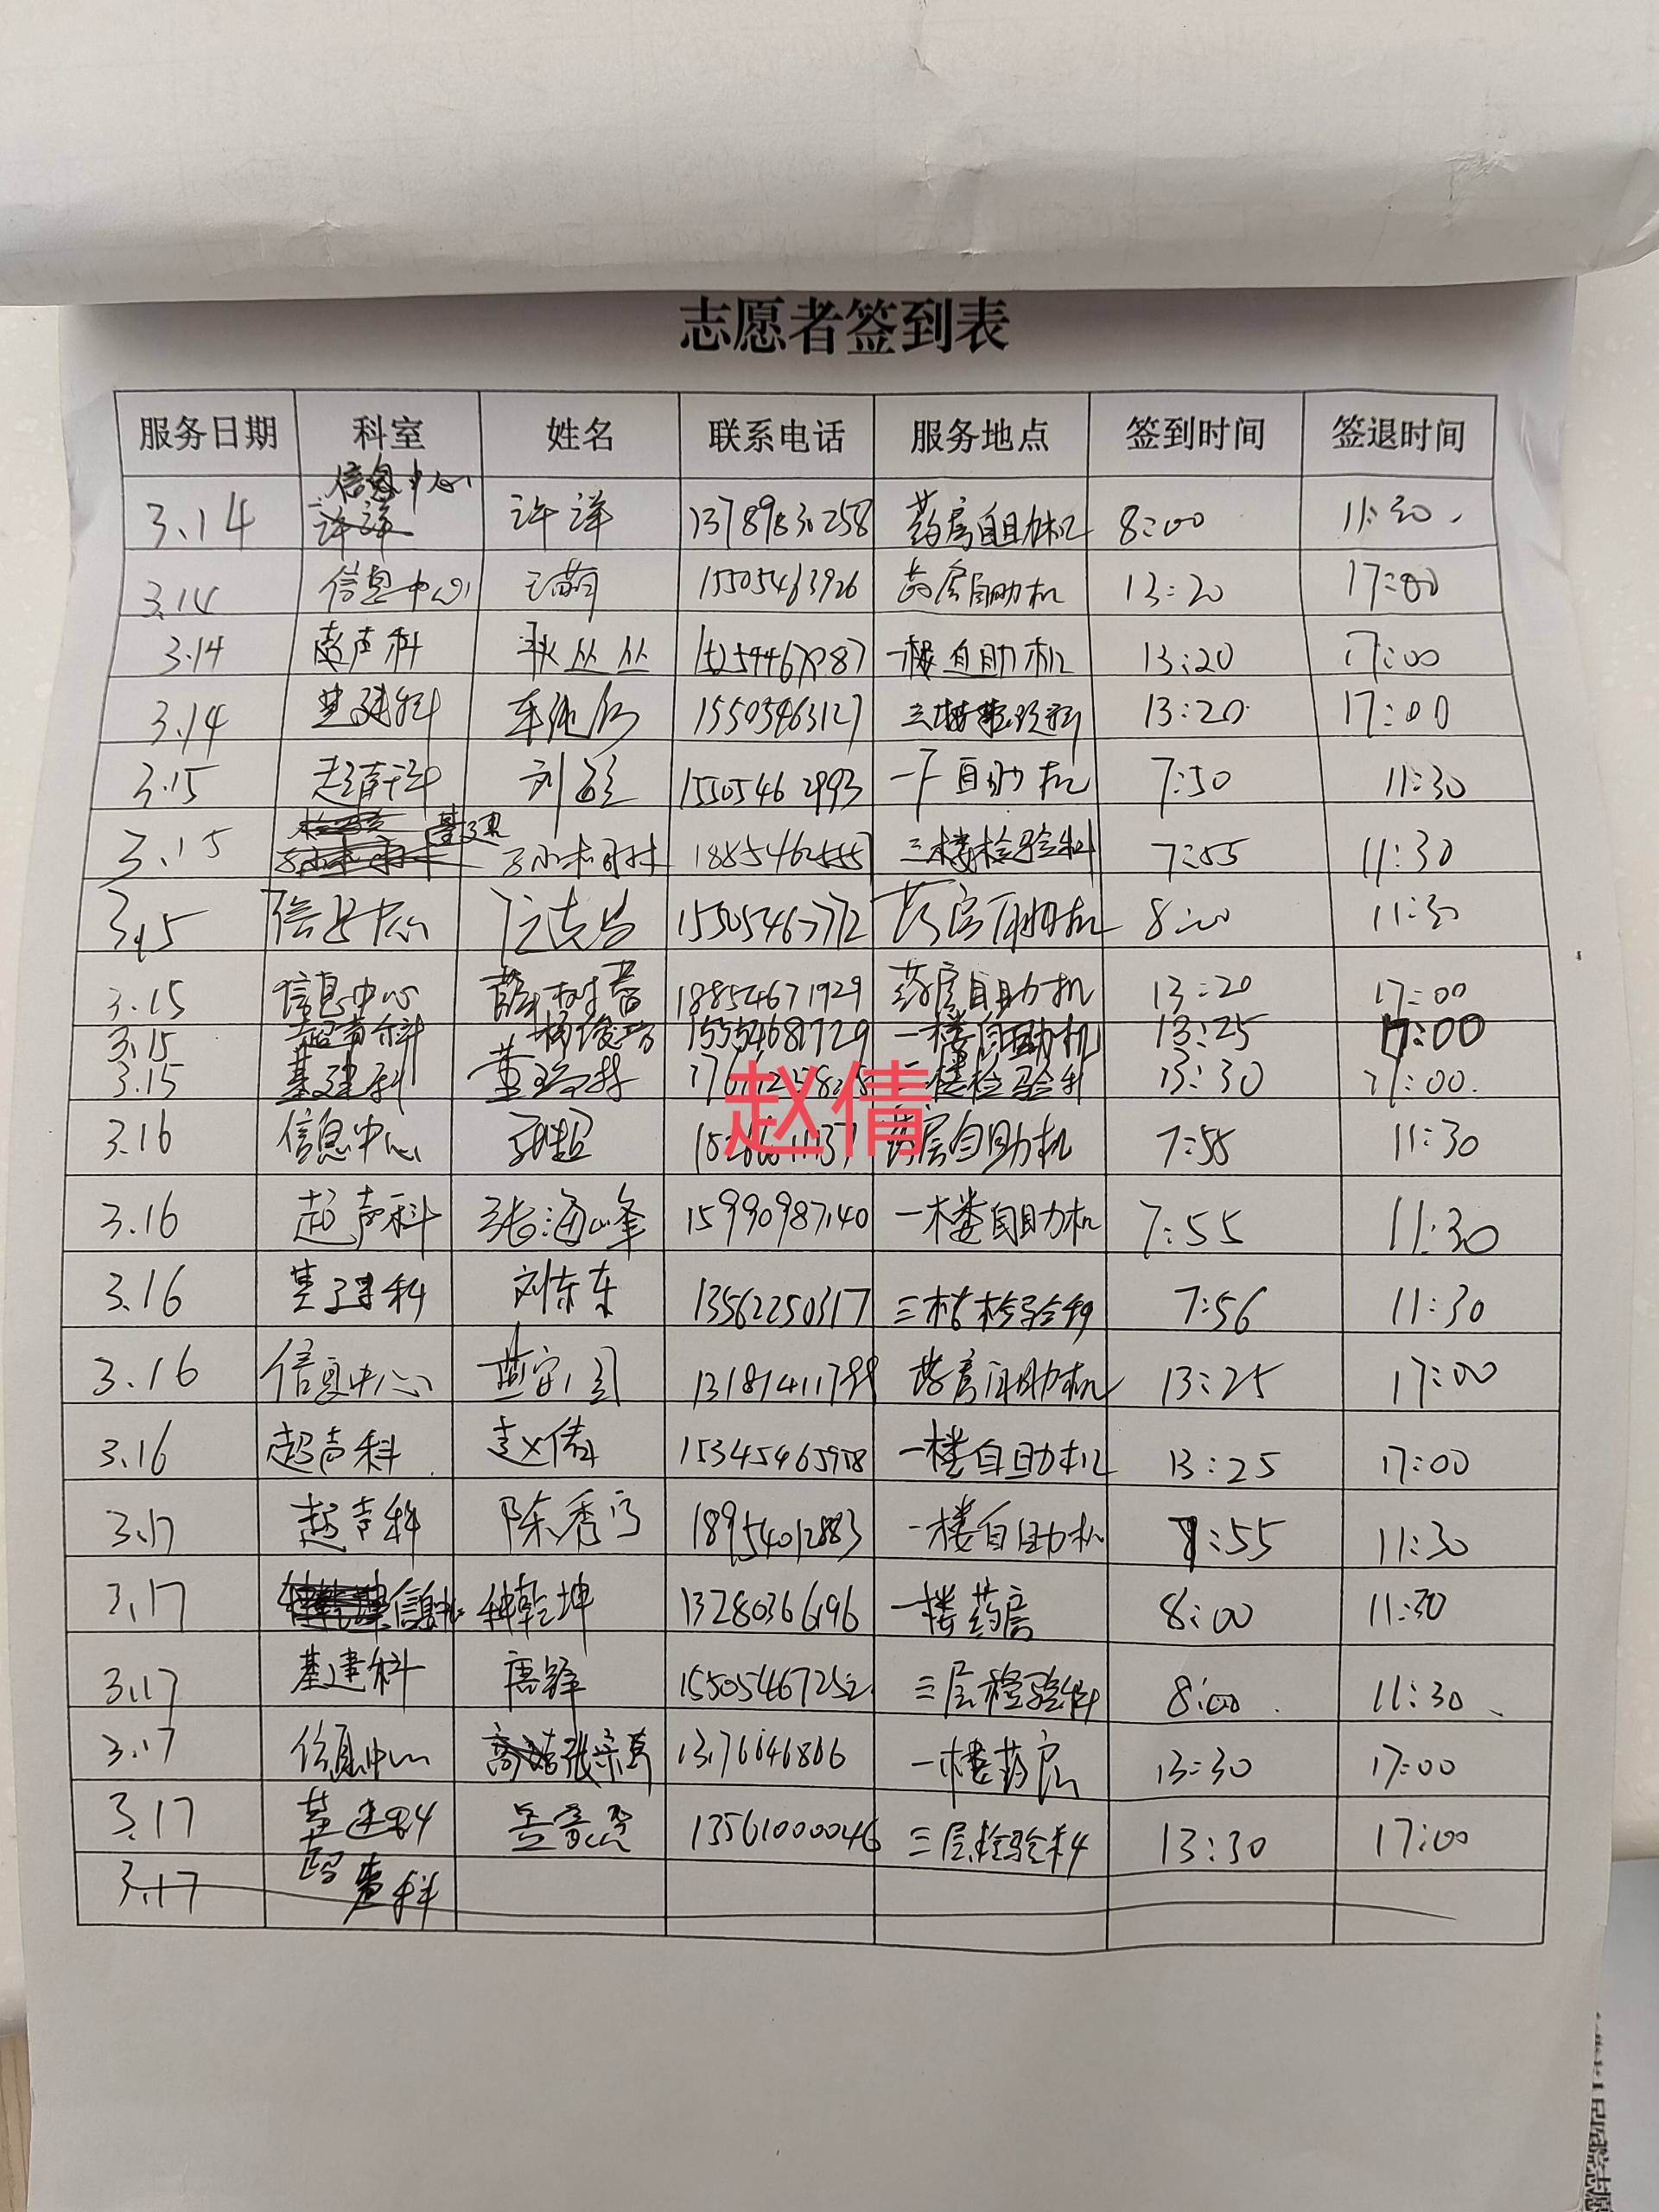 志愿者签到表
服务日期 科室 姓名 联系电话 服务地点 签到时间 签退时间
信息中心
3.14 许洋 许洋 13789830258 药房自助机 8:00 11:30
3.14 信息中心 王萌 15505463926 药房自助机 13:20 17:00
3.14 超声科 耿丛丛 一楼自助机 13:20 17:00
3.14 基建科 15505463127 三楼检验科 13:20 17:00
3.15 超声科 刘 15505462993 一F自助机 7:50 11:30
基建
3.15 三楼检验科 7:55 11:30
3.15 信息中心 15505463772 药房自助机 8:00 11:30
3.15 信息中心 薛树蕾 18854671929 药房自助机 13:20 17:00
3.15 超声科 杨俊芬 15554681729 一楼自助机 13:25 17:00
3.15 基建科 董 三楼检验科 13:30 17:00
赵倩
3.16 信息中心 药房自助机 7:55 11:30
3.16 超声科 张海峰 15990987140 一楼自助机 7:55 11:30
3.16 基建科 刘东东 13562250317 三楼检验科 7:56 11:30
3.16 信息中心 13181411799 药房自助机 13:25 17:00
3.16 超声科 赵倩 15345465978 一楼自助机 13:25 17:00
3.17 超声科 陈秀 18954012883 一楼自助机 7:55 11:30
3.17 信息中心 种乾坤 13280366196 一楼药房 8:00 11:30
3.17 基建科 唐锋 15505467252 三层检验科 8:00 11:30
3.17 信息中心 张 13176646866 一楼药房 13:30 17:00
3.17 基建科 13561000046 三层检验科 13:30 17:00
3.17 超声科